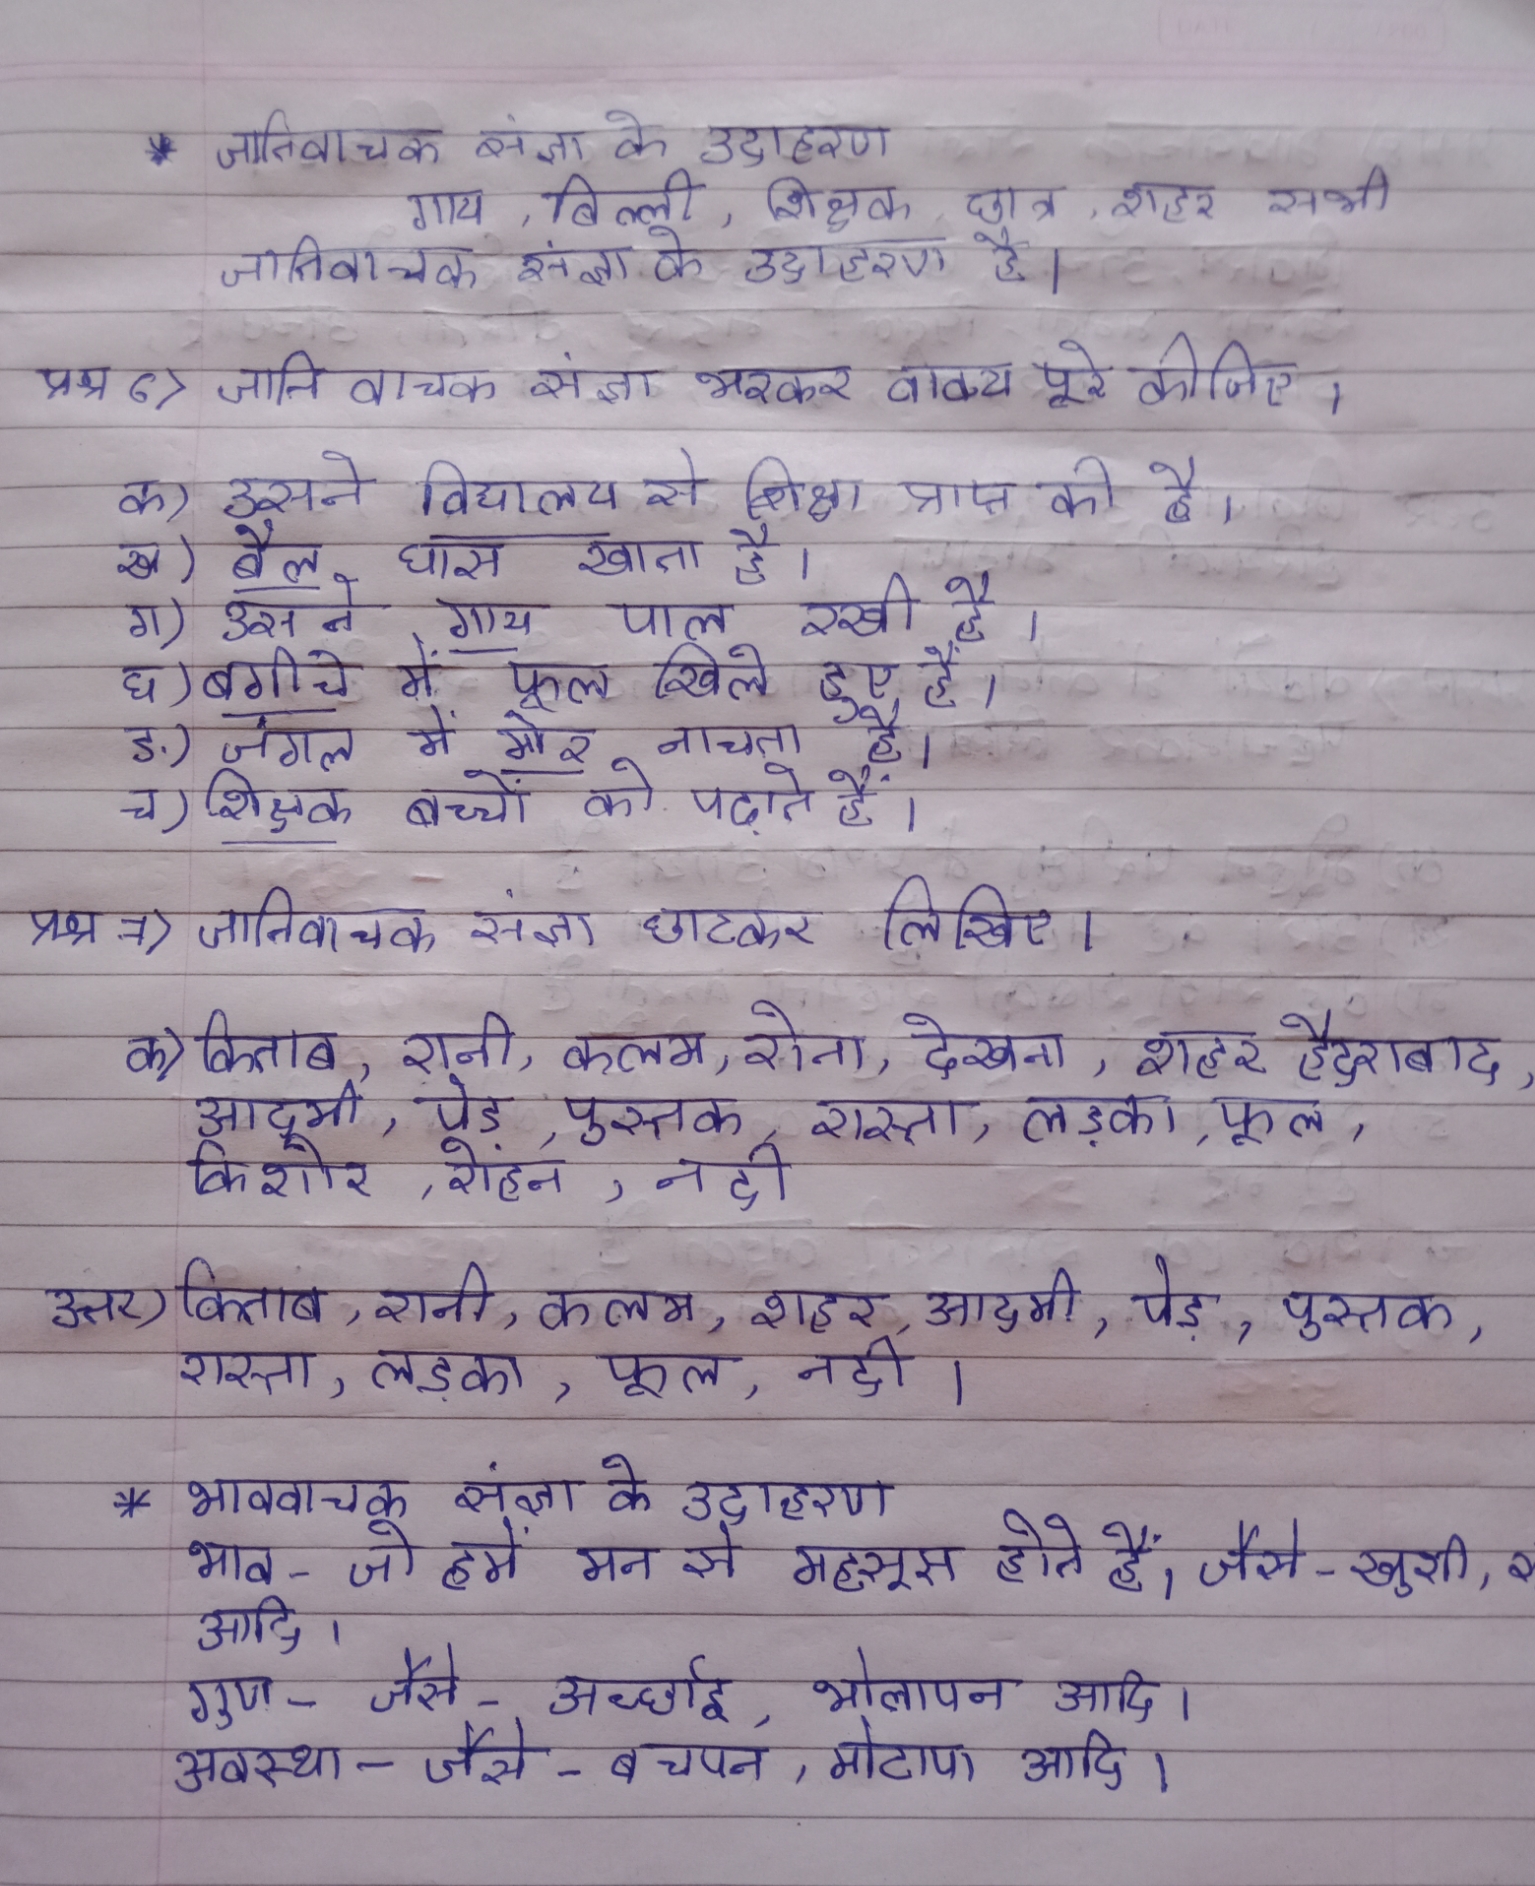 * जातिवाचक संज्ञा के उदाहरण
गाय, बिल्ली, शिक्षक, छात्र, शहर सभी
जातिवाचक संज्ञा के उदाहरण है।
प्रश्न 6) जाति वाचक संज्ञा भरकर वाक्य पूरे कीजिए।
क) उसने विद्यालय से शिक्षा प्राप्त की है।
ख) बैल घास खाता है।
ग) उसने गाय पाल रखी है।
घ) बगीचे में फूल खिले हुए हैं।
ङ) जंगल में मोर नाचता है।
च) शिक्षक बच्चों को पढ़ाते हैं।
प्रश्न 7) जातिवाचक संज्ञा छाटकर लिखिए।
क) किताब, रानी, कलम, रोना, देखना, शहर हैदराबाद,
आदमी, पेड़, पुस्तक, रास्ता, लड़का, फूल,
किशोर, रोहन, नदी
उत्तर) किताब, रानी, कलम, शहर, आदमी, पेड़, पुस्तक,
रास्ता, लड़का, फूल, नदी।
* भाववाचक संज्ञा के उदाहरण
भाव - जो हमें मन से महसूस होते हैं, जैसे - खुशी,
आदि।
गुण - जैसे - अच्छाई, भोलापन आदि।
अवस्था - जैसे - बचपन, मोटापा आदि।